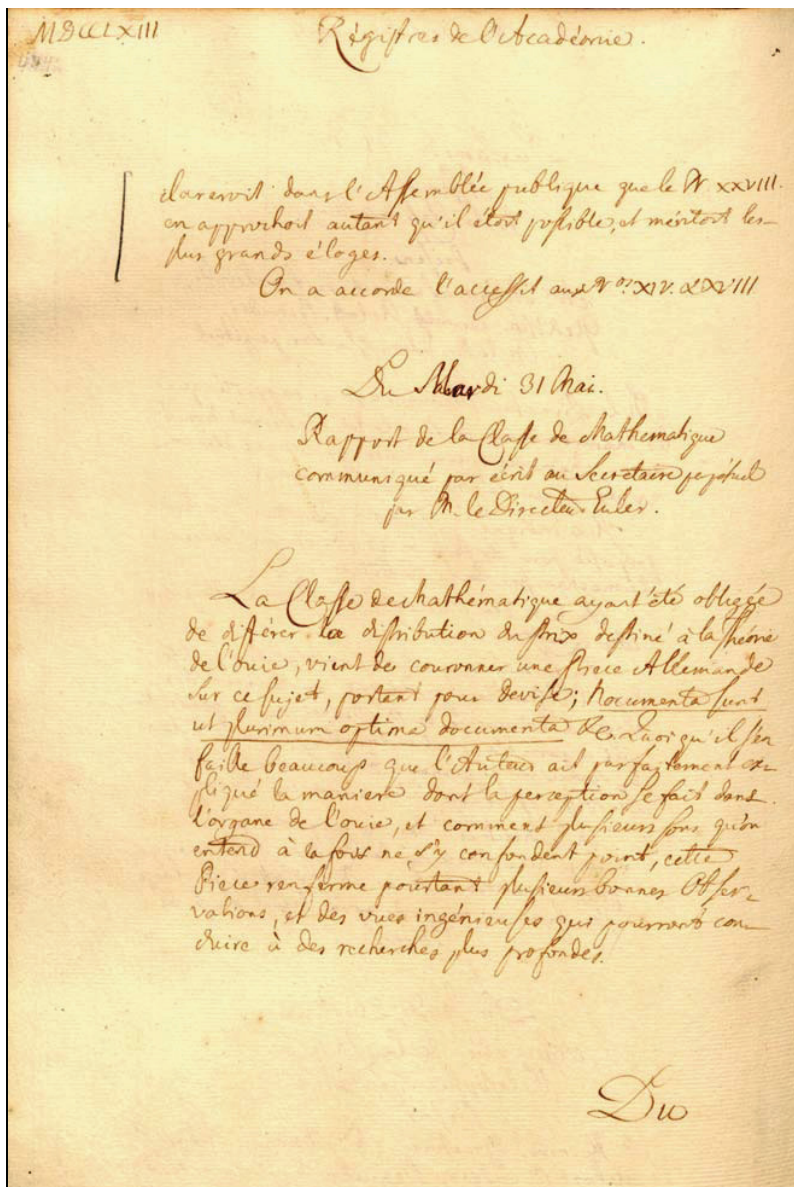 MDCCLXIII
Régistres de l'Académie.
clareroit dans l'Assemblée publique que le N. XXVIII.
en approchoit autant qu'il étoit possible, et méritoit les
plus grands éloges.
On a accordé l'accessit aux Nos. XIV. & XVIII
Du Mardi 31 Mai.
Rapport de la Classe de Mathematique
communiqué par écrit au Secretaire perpétuel
par M. le Directeur Euler.
La Classe de Mathématique ayant été obligée
de différer la distribution du prix destiné à la théorie
de l'ouie, vient de couronner une Piece Allemande
sur ce sujet, portant pour devise; Nocumenta sunt
ut plurimum optima documenta &c. Quoiqu'il s'en
faille beaucoup que l'Auteur ait parfaitement ex-
pliqué la maniere dont la perception se fait dans
l'organe de l'ouie, et comment plusieurs sons qu'on
entend à la fois ne s'y confondent point, cette
Piece renferme pourtant plusieurs bonnes Obser-
vations, et des vues ingénieuses qui pourront con-
duire à des recherches plus profondes.
Du